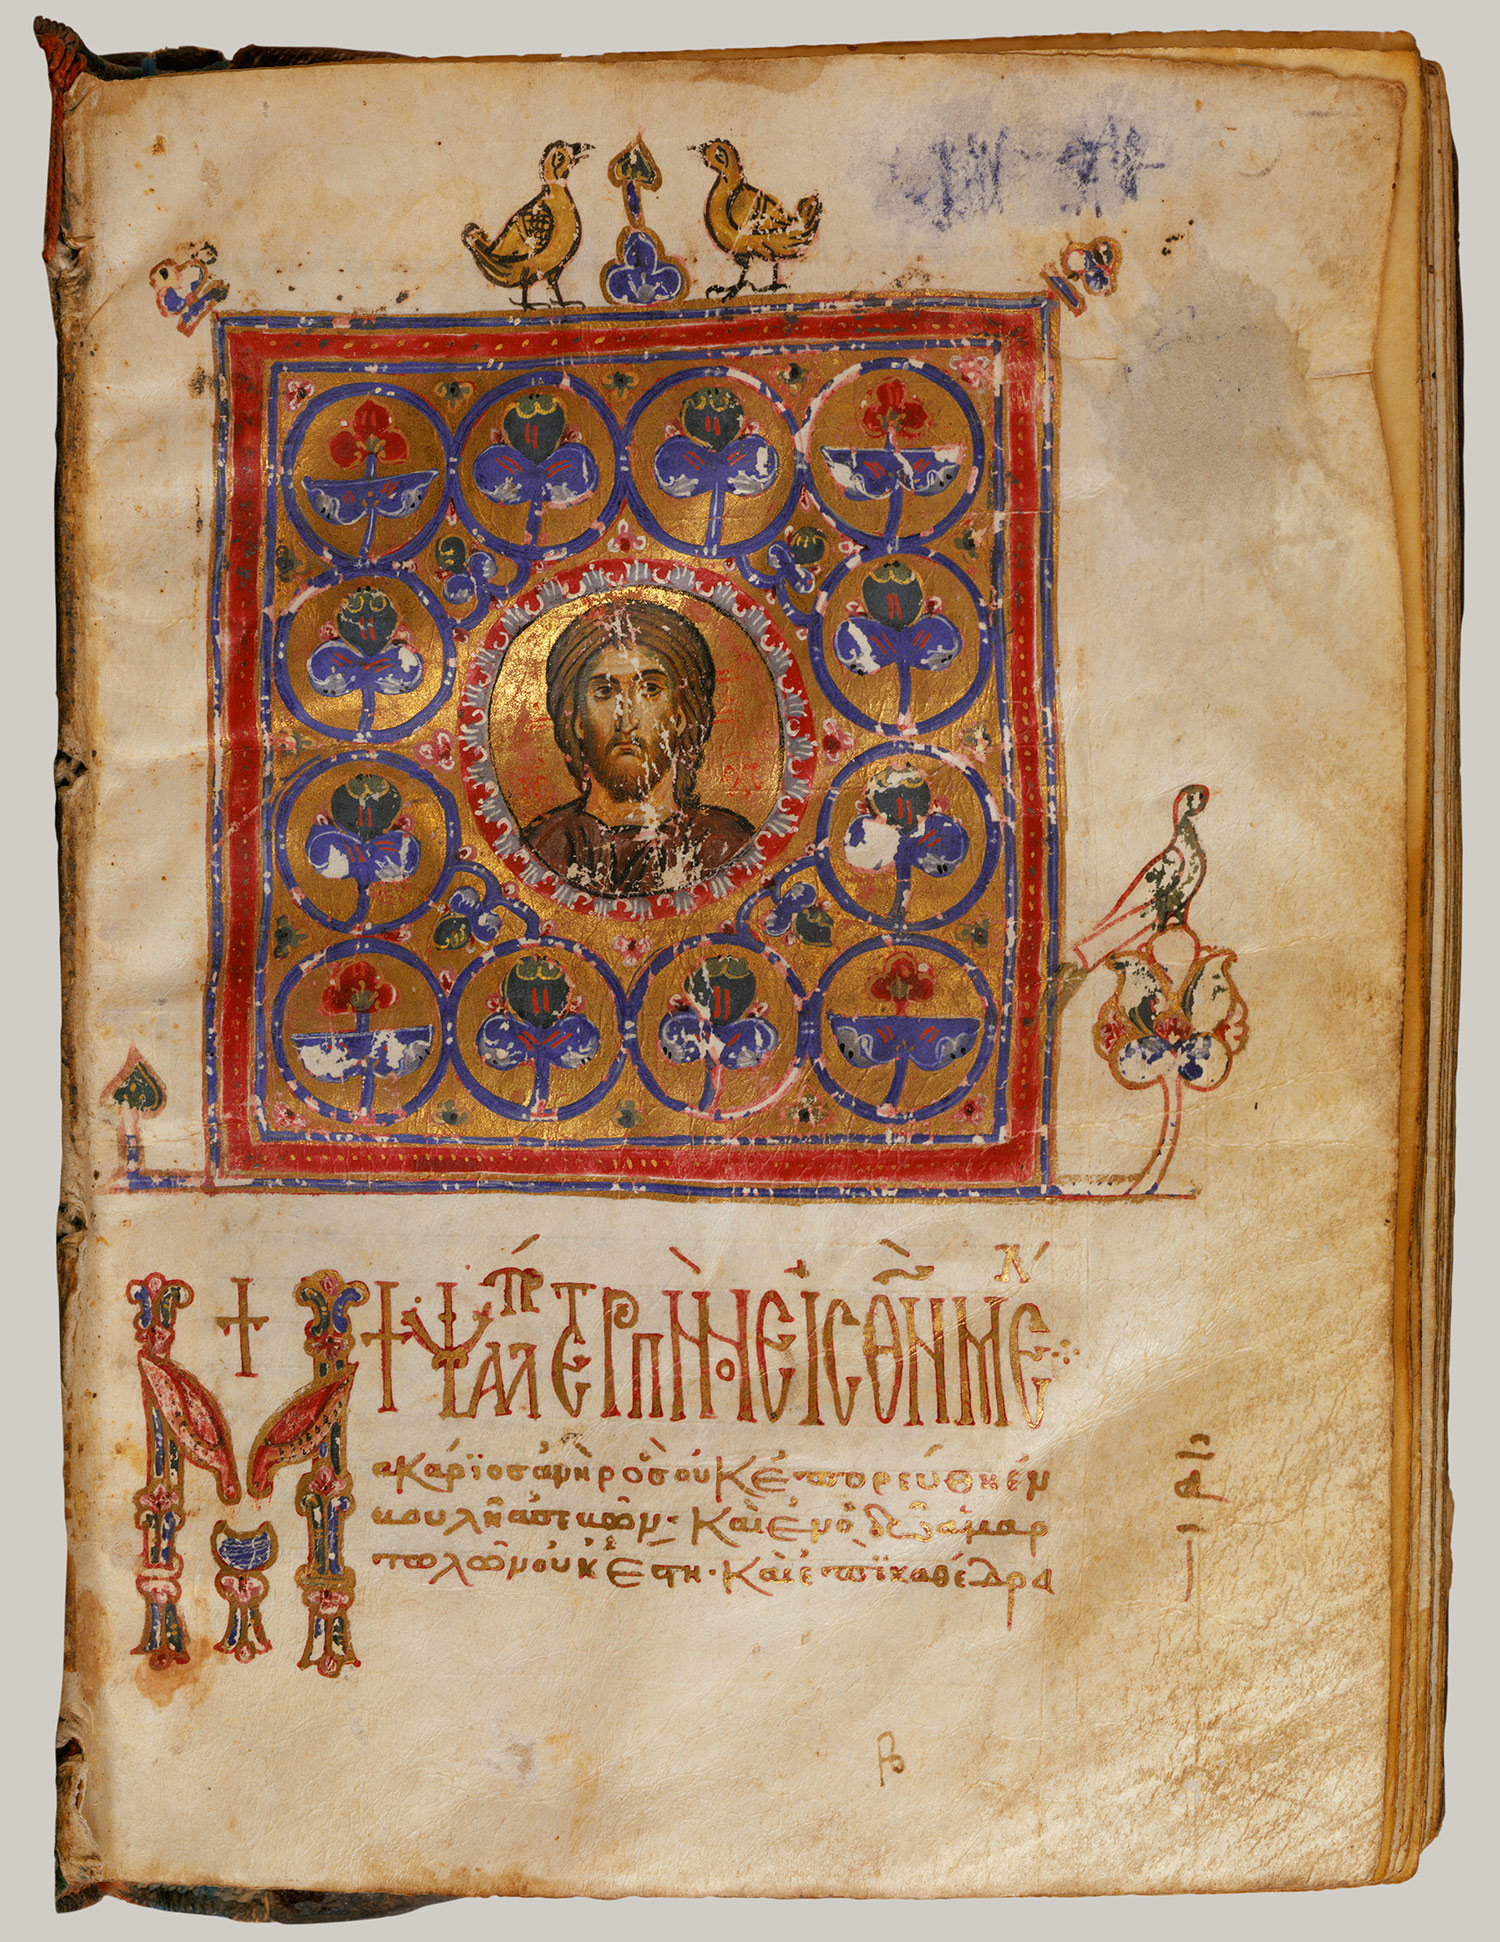 ΙϹ ΧϹ
+ + ΨΑΛ ΠΡ ΤΕΡΠΝὸΝ ΕἸϹ ΘΝ ΜΕΛ
Μακάριος ἀνὴρ ὃς οὐκ ἐπορεύθη ἐν
βουλῆ ἀσεβῶν· Καὶ ἐν ὁδῶ ἁμαρ
τωλῶν οὐκ ἔστη· Καὶ ἐπὶ καθέδρα